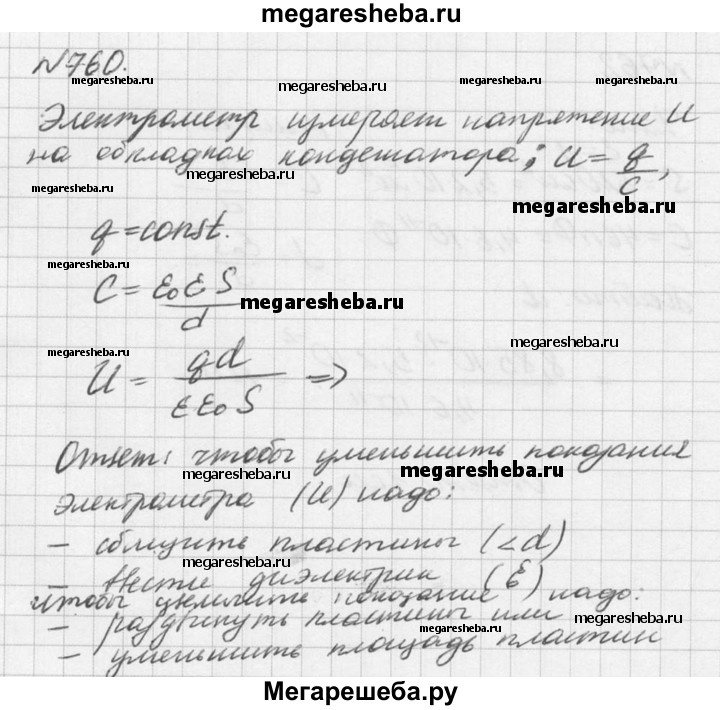 megaresheba.ru
№760. megaresheba.ru
megaresheba.ru megaresheba.ru megaresheba.ru
Электрометр измеряет напряжение U
на обкладках конденсатора; U = q/C,
megaresheba.ru megaresheba.ru
q = const.
megaresheba.ru
C = ε₀εS/d megaresheba.ru
megaresheba.ru megaresheba.ru
U = qd/εε₀S =>
Ответ: чтобы уменьшить показания
megaresheba.ru megaresheba.ru
электрометра (U) надо:
– сблизить пластины (<d)
megaresheba.ru
– внести диэлектрик (ε)
чтобы увеличить показание надо:
– раздвинуть пластины или
megaresheba.ru megaresheba.ru megaresheba.ru
– уменьшить площадь пластин
Мегарешеба.ру